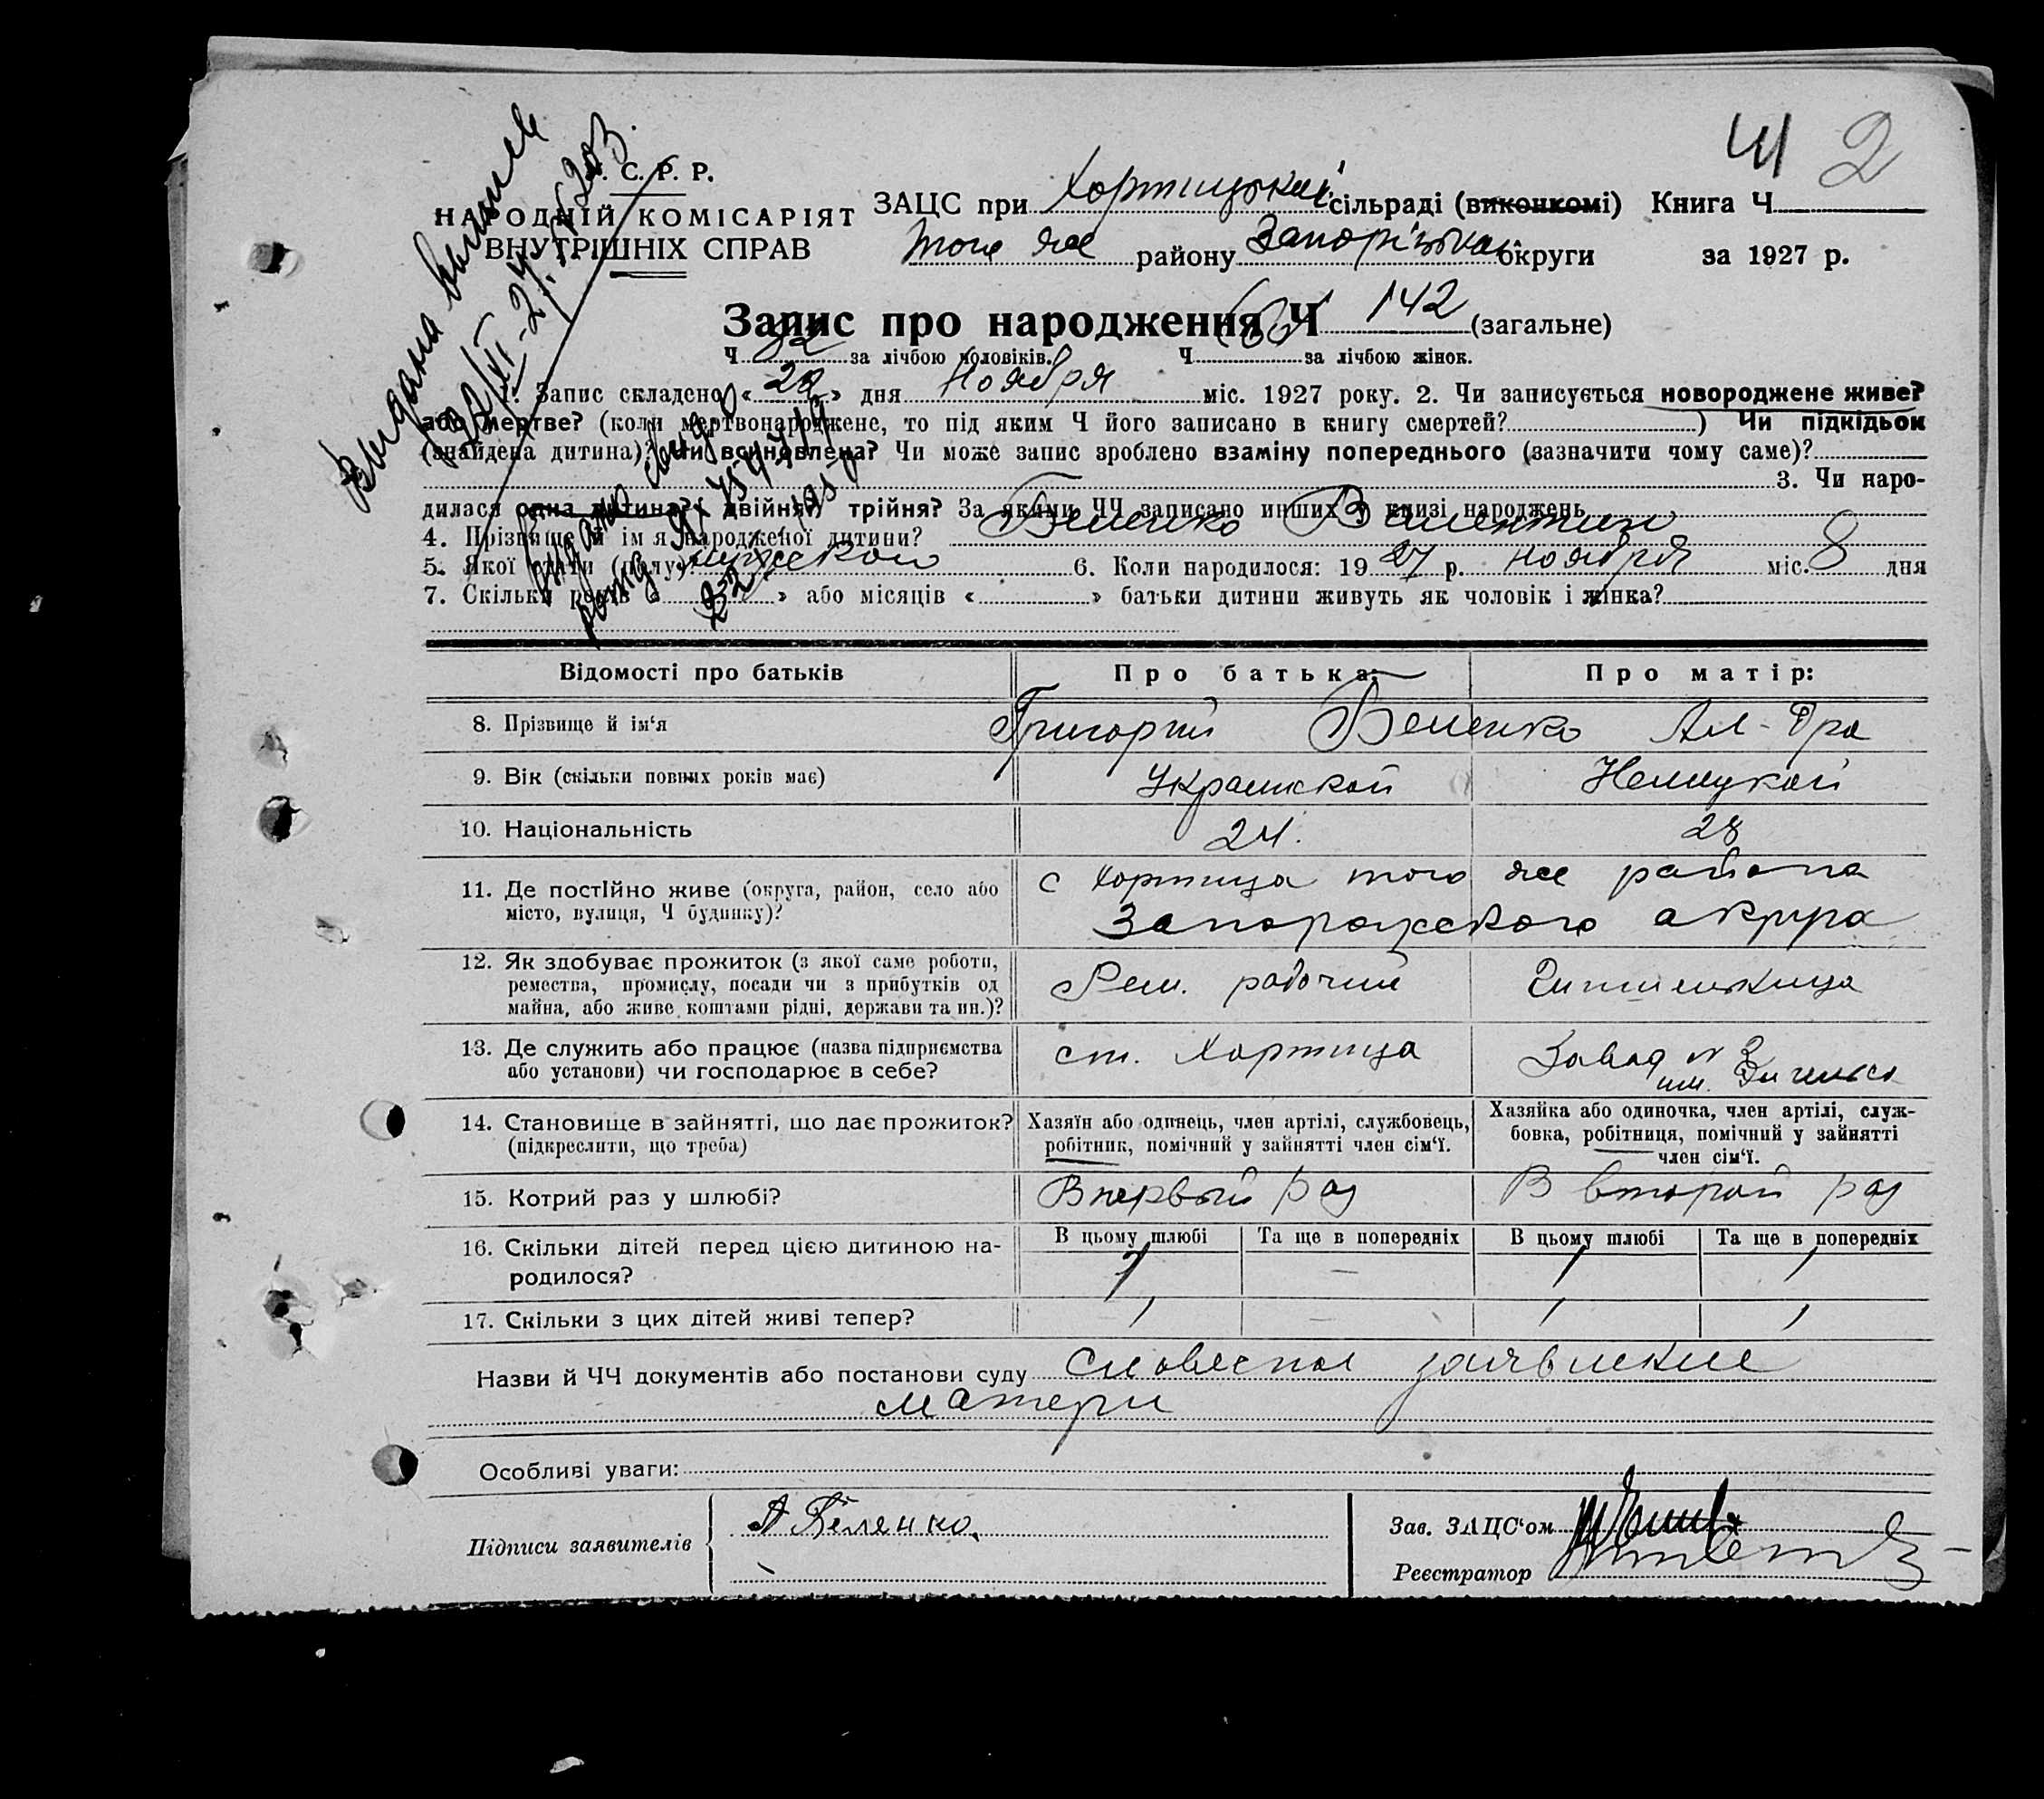 Ч 2
. С. Р. Р.
НАРОДНІЙ КОМІСАРІЯТ
ВНУТРІШНІХ СПРАВ
ЗАЦС при Хортицькій сільраді (виконкомі) Книга Ч
того же району Запорізької округи за 1927 р.
Запис про народження Ч 142 (загальне)
Ч 82 за лічбою чоловіків. Ч 60 за лічбою жінок.
1. Запис складено «22» дня Ноября міс. 1927 року. 2. Чи записується новороджене живе?
або мертве? (коли мертвонароджене, то під яким Ч його записано в книгу смертей? ) Чи підкідьок
(знайдена дитина)? Чи всиновлена? Чи може запис зроблено взаміну попереднього (зазначити чому саме)?
3. Чи наро-
дилася одна дитина? двійня? трійня? За якими ЧЧ записано инших в книзі народжень
4. Прізвище й ім'я народженої дитини? Беленко Валентин
5. Якої стати (полу) мужеской 6. Коли народилося: 1927 р. ноября міс. 8 дня
7. Скільки років « » або місяців « » батьки дитини живуть як чоловік і жінка?
Видана выпись
22/XI-27
Відомості про батьків Про батька: Про матір:
8. Прізвище й ім'я Григорий Беленко Ал-дра
9. Вік (скільки повних років має) Украинской Немецкой
10. Національність 24. 28
11. Де постійно живе (округа, район, село або с Хортица того же района
місто, вулиця, Ч будинку)? Запорожского округа
12. Як здобуває прожиток (з якої саме роботи, Рем. рабочий
ремества, промислу, посади чи з прибутків од
майна, або живе коштами рідні, держави та ин.)?
13. Де служить або працює (назва підприємства ст. Хортица Завод № 3
або установи) чи господарює в себе? им. Энгельса
14. Становище в зайнятті, що дає прожиток? Хазяїн або одинець, член артілі, службовець, Хазяйка або одиночка, член артілі, служ-
(підкреслити, що треба) робітник, помічний у зайнятті член сім'ї. бовка, робітниця, помічний у зайнятті
член сім'ї.
15. Котрий раз у шлюбі? Впервый раз В второй раз
16. Скільки дітей перед цією дитиною на- В цьому шлюбі Та ще в попередніх В цьому шлюбі Та ще в попередніх
родилося? 1 — 1 1
17. Скільки з цих дітей живі тепер? 1 — 1 1
Назви й ЧЧ документів або постанови суду Словесное заявление
матери
Особливі уваги:
Підписи заявителів А Беленко
Зав. ЗАЦС'ом
Реєстратор